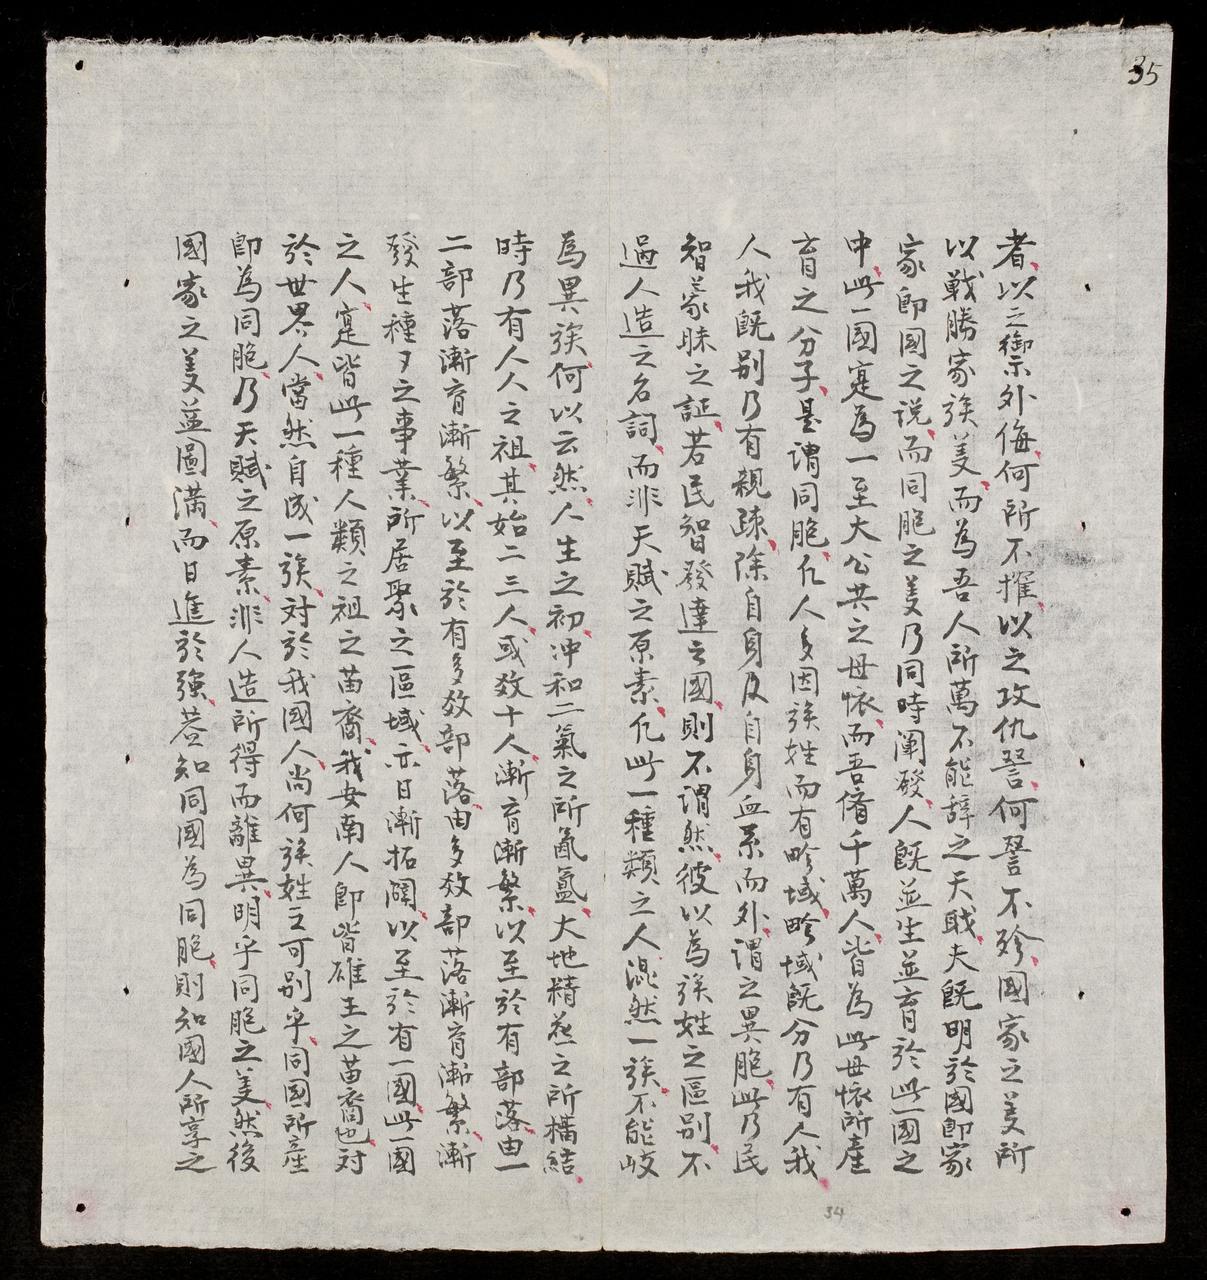 35
者以之御外侮何所不摧以之攻仇讐何讐不殄國家之義所
以戰勝家族義而為吾人所萬不能辞之天職夫既明於國即家
家即國之説而同胞之義乃同時闡發人既並生並育於此一國之
中此一國寔為一至大公共之母懐而吾儕千萬人皆為此母懐所產
育之分子是謂同胞凢人多因族姓而有畛域畛域既分乃有人我
人我既别乃有親疎除自身及自身血系而外謂之異胞此乃民
智蒙昧之証若民智發達之國則不謂然彼以為族姓之區别不
過人造之名詞而非天賦之原素凢此一種類之人渾然一族不能岐
為異族何以云然人生之初冲和二氣之所氤氳大地精英之所構結
時乃有人人之祖其始二三人或数十人漸育漸繁以至於有部落由一
二部落漸育漸繁以至於有多数部落由多数部落漸育漸繁漸
發生種々之事業所居聚之區域亦日漸拓濶以至於有一國此一國
之人寔皆此一種人類之祖之苗裔我安南人即皆雄王之苗裔也対
於世界人當然自成一族対於我國人尚何族姓之可别乎同國所產
即為同胞乃天賦之原素非人造所得而離異明乎同胞之義然後
國家之義益圖滿而日進於強蓋知同國為同胞則知國人所享之
34